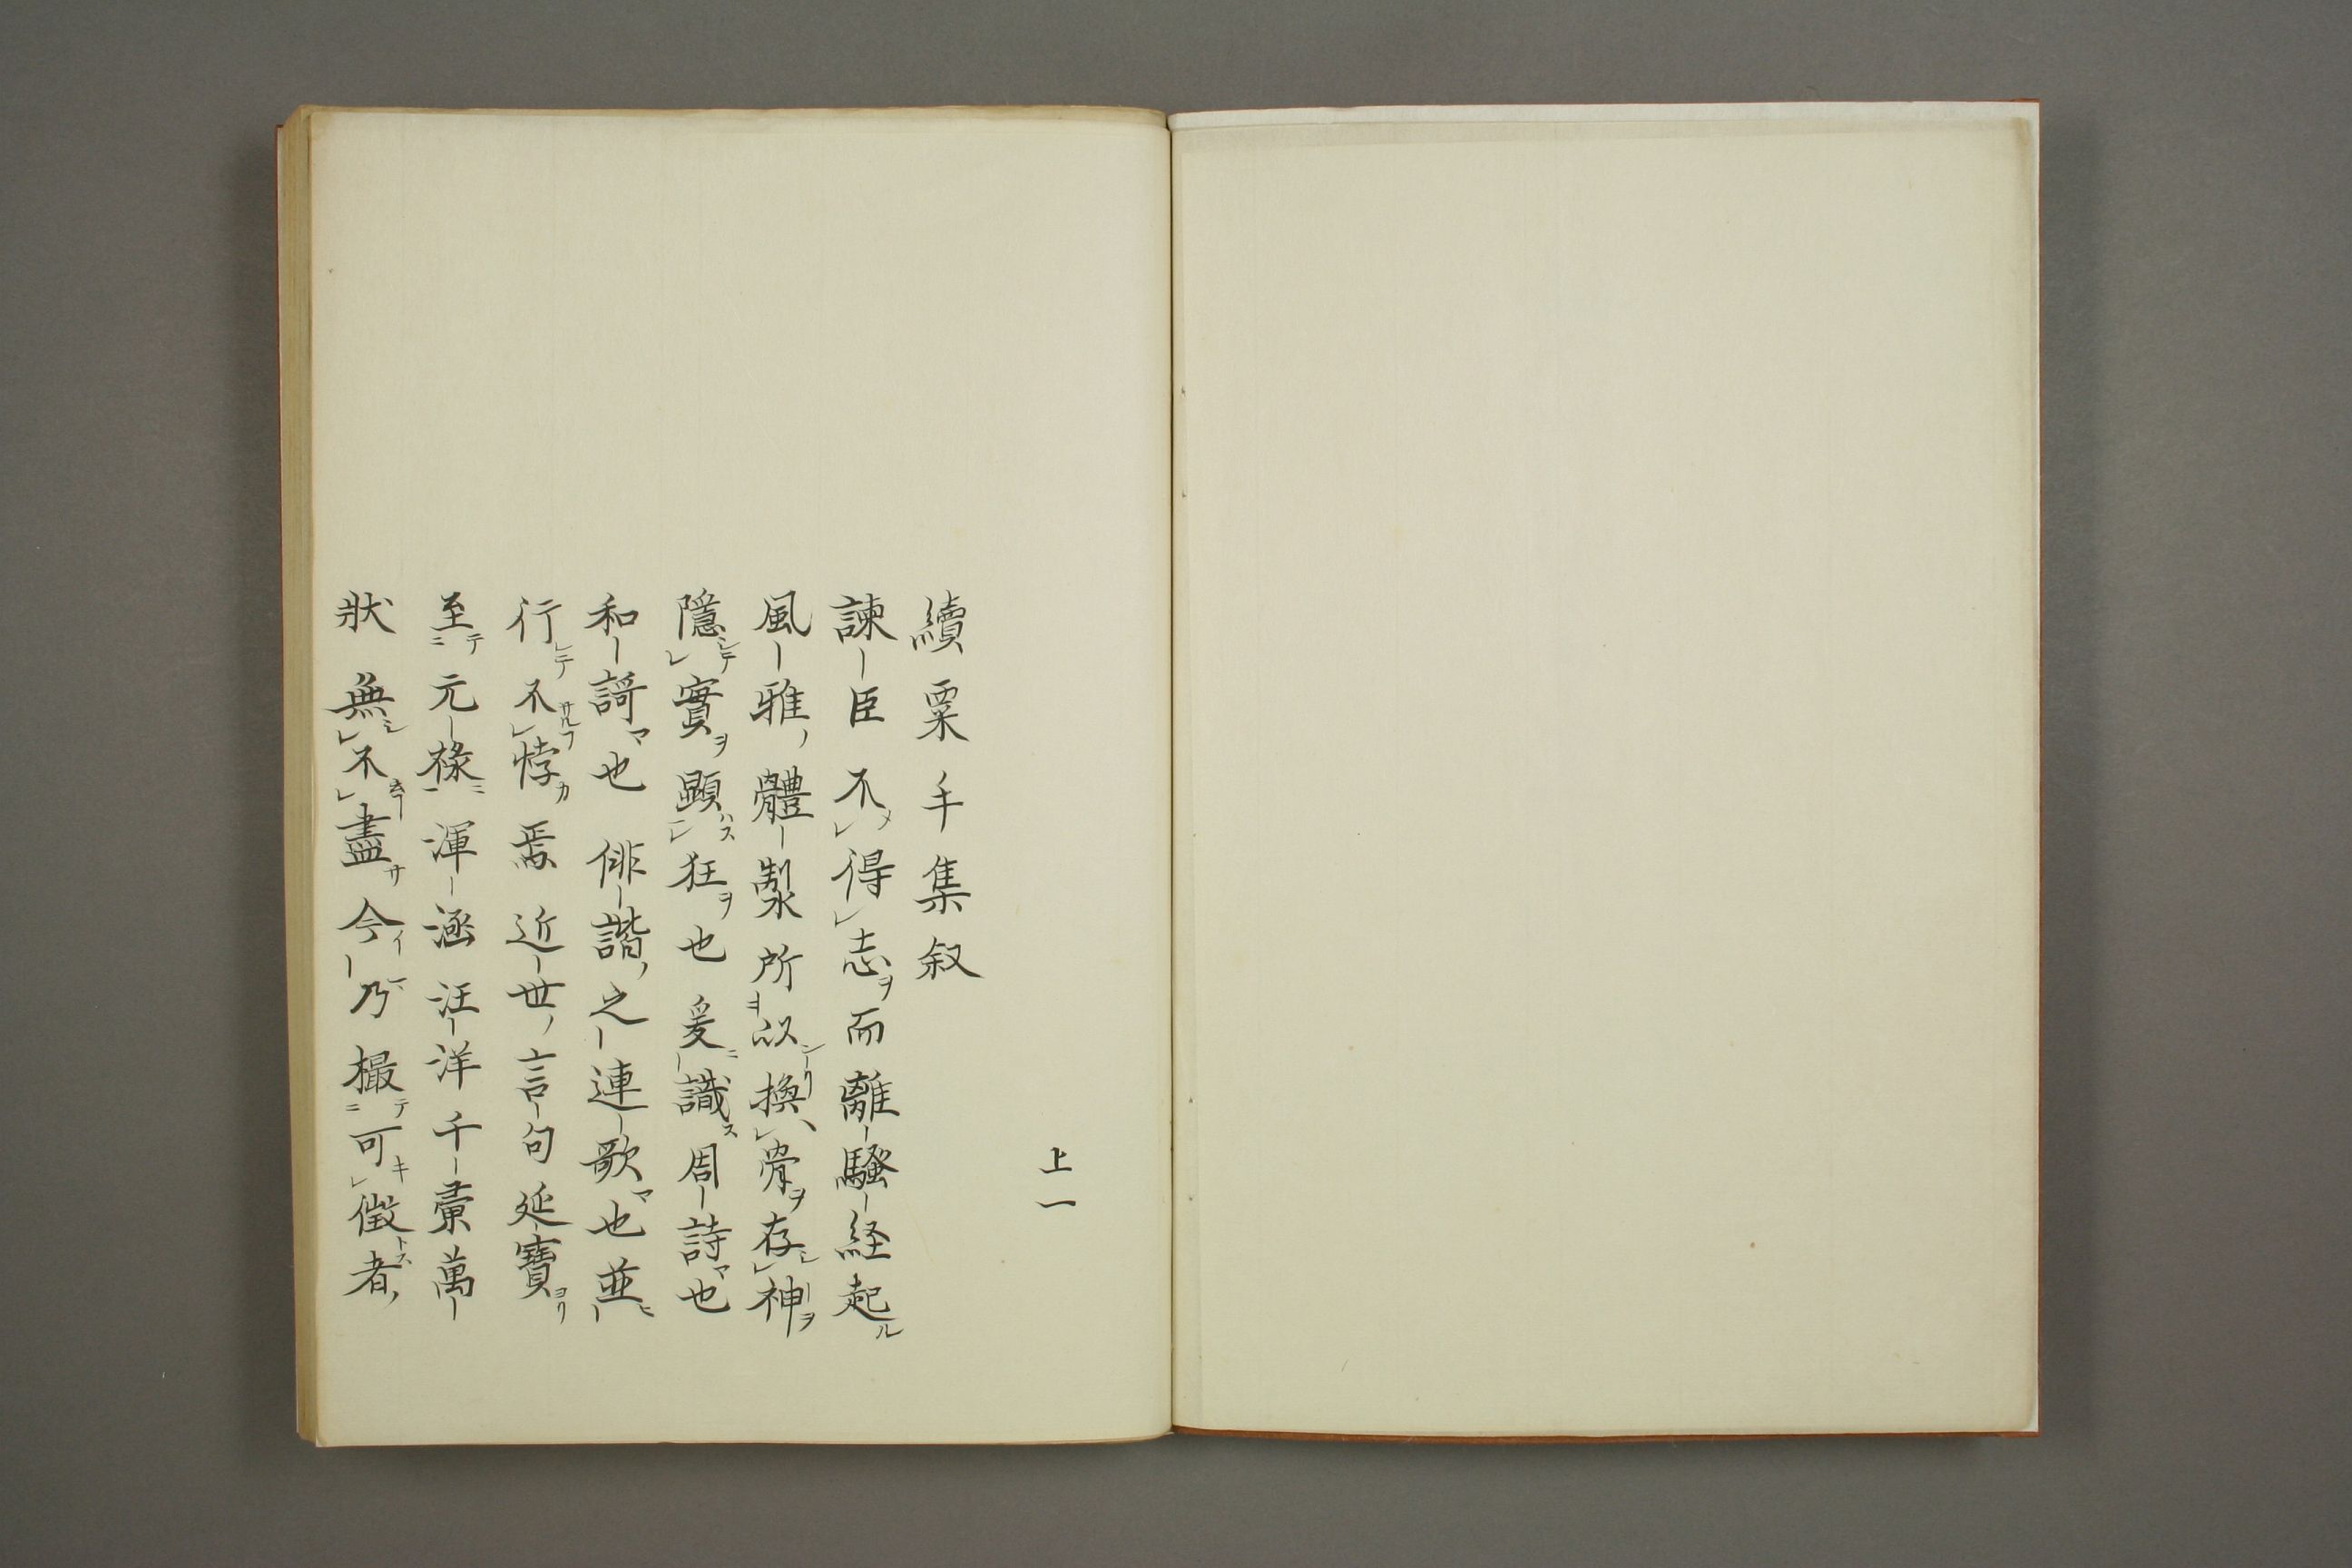 上一
續粟手集叙
諫臣不得志而離騒経起
風雅體製所以換骨存神
隱實顯狂也爰識周詩也
和謌也俳諧之連歌也並
行不悖焉近世言句延寶
至元祿渾涵汪洋千彙萬
狀無不盡今乃撮可徴者